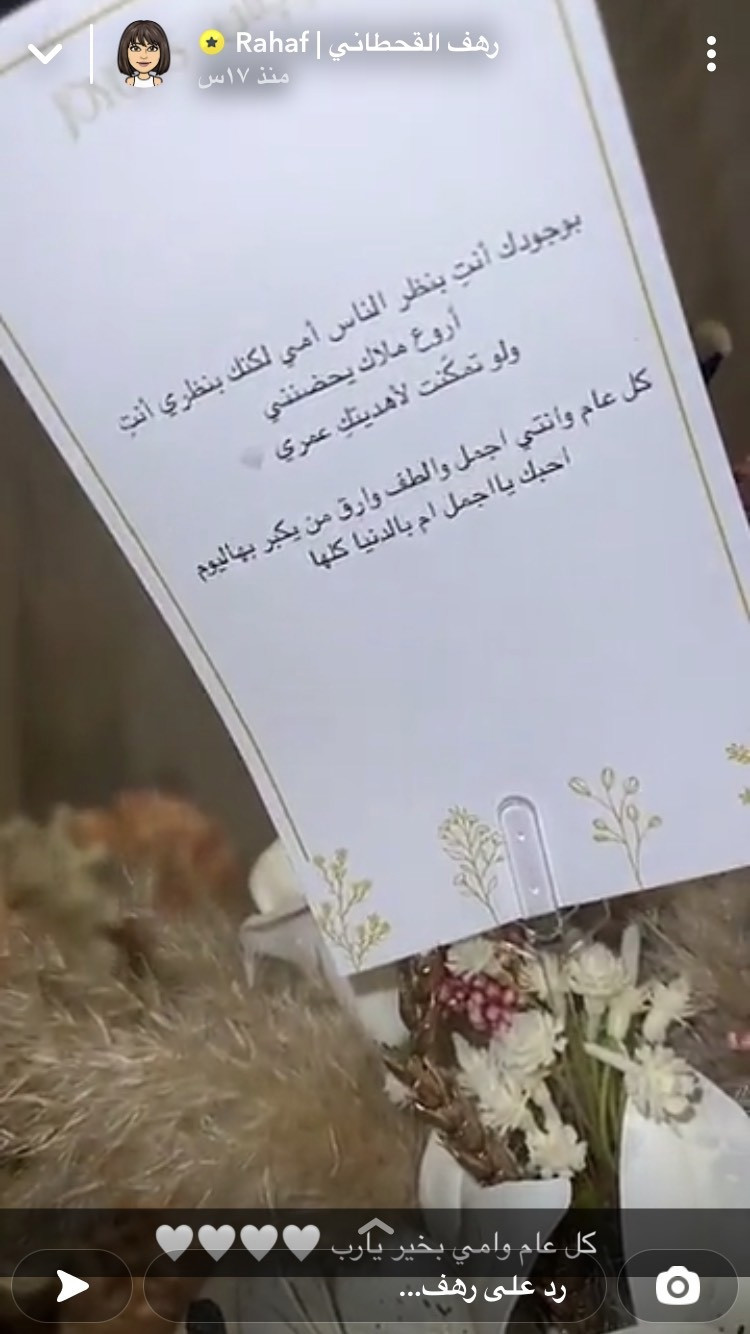 رهف القحطاني | Rahaf
منذ ١٧س
بوجودك أنتِ بنظر الناس أمي لكنك بنظري أنتِ
أروع ملاك يحضنني
ولو تمكّنت لأهديتكِ عمري
كل عام وانتي اجمل والطف وارق من يكبر بهاليوم
احبك يااجمل ام بالدنيا كلها
كل عام وامي بخير يارب 🤍🤍🤍🤍
رد على رهف...